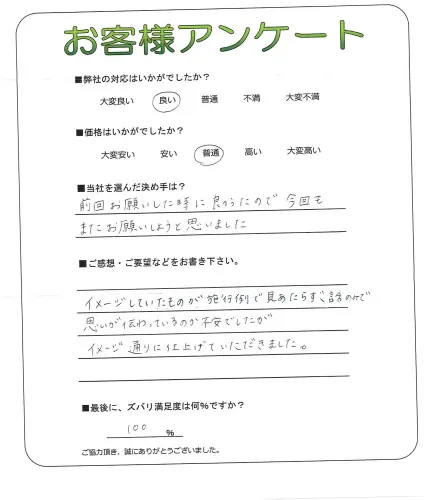 お客様アンケート
■弊社の対応はいかがでしたか？
大変良い 良い 普通 不満 大変不満
■価格はいかがでしたか？
大変安い 安い 普通 高い 大変高い
■当社を選んだ決め手は？
前回お願いした時に良かったので今回も
またお願いしようと思いました
■ご感想・ご要望などをお書き下さい。
イメージしていたものが施行例で見あたらずお話のみで
思いが伝わっているのか不安でしたが
イメージ通りに仕上げていただきました。
■最後に、ズバリ満足度は何％ですか？
100 ％
ご協力頂き、誠にありがとうございました。